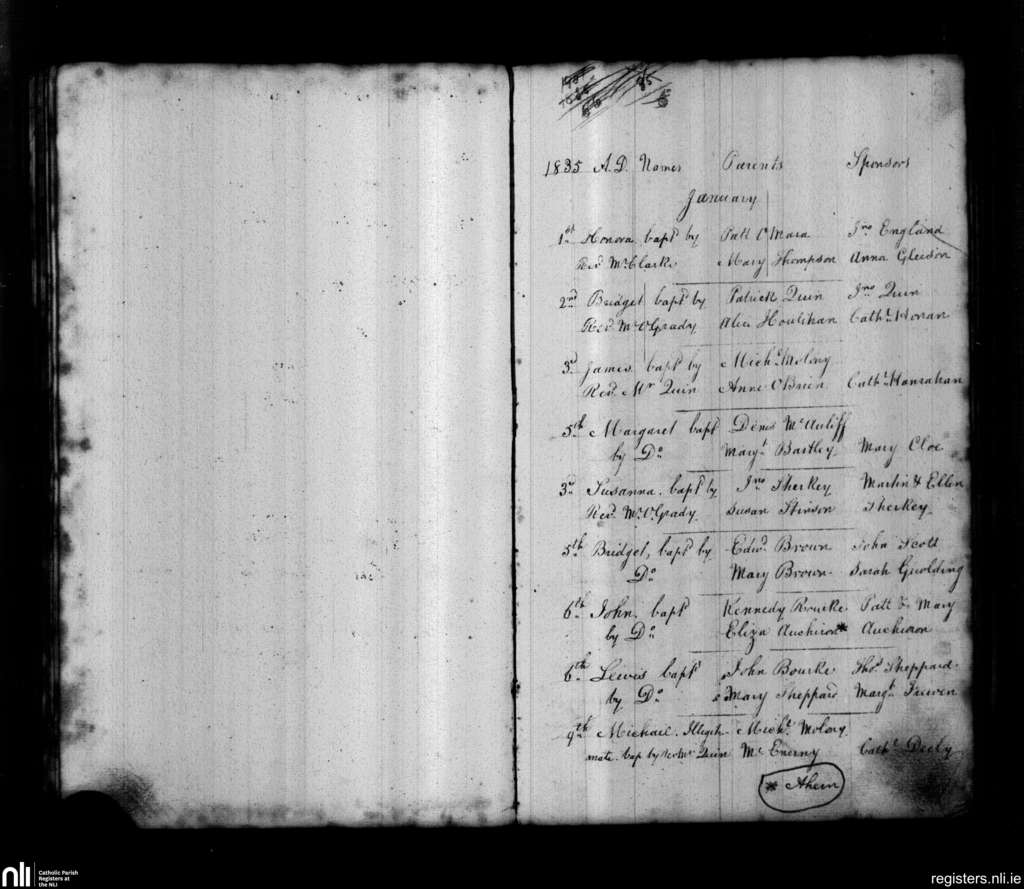 1835 A.D. Names Parents Sponsors
January
1st Honora bapt by Patt O'Mara Jno England
Revd Mr Clarke Mary Thompson Anna Gleison
2nd Bridget bapt by Patrick Quin Jno Quin
Revd Mr O'Grady Alice Houlihan Cathe Honan
3d James bapt by Michl Molony
Revd Mr Quin Anne O'Brien Cathe Hanrahan
5th Margaret bapt Denis McAuliff
by Do Margt Bartley Mary Cloe
3d Susanna bapt by Jno Sherkey Martin & Ellen
Revd Mr O'Grady Susan Stinson Sherkey
5th Bridget, bapt by Edwd Brown John Scott
Do Mary Brown Sarah Guolding
6th John bapt Kennedy Rourke Patt & Mary
by Do Eliza Auchiron* Auchiron
6th Lewis bapt John Bourke Thos Sheppard
by Do Mary Sheppard Margt Frewen
9th Michael Illegiti- Michl Molony
mate bap by Revd Mr Quin McEnerny Cathe Deely
* Ahern
nli Catholic Parish
Registers at
the NLI
registers.nli.ie